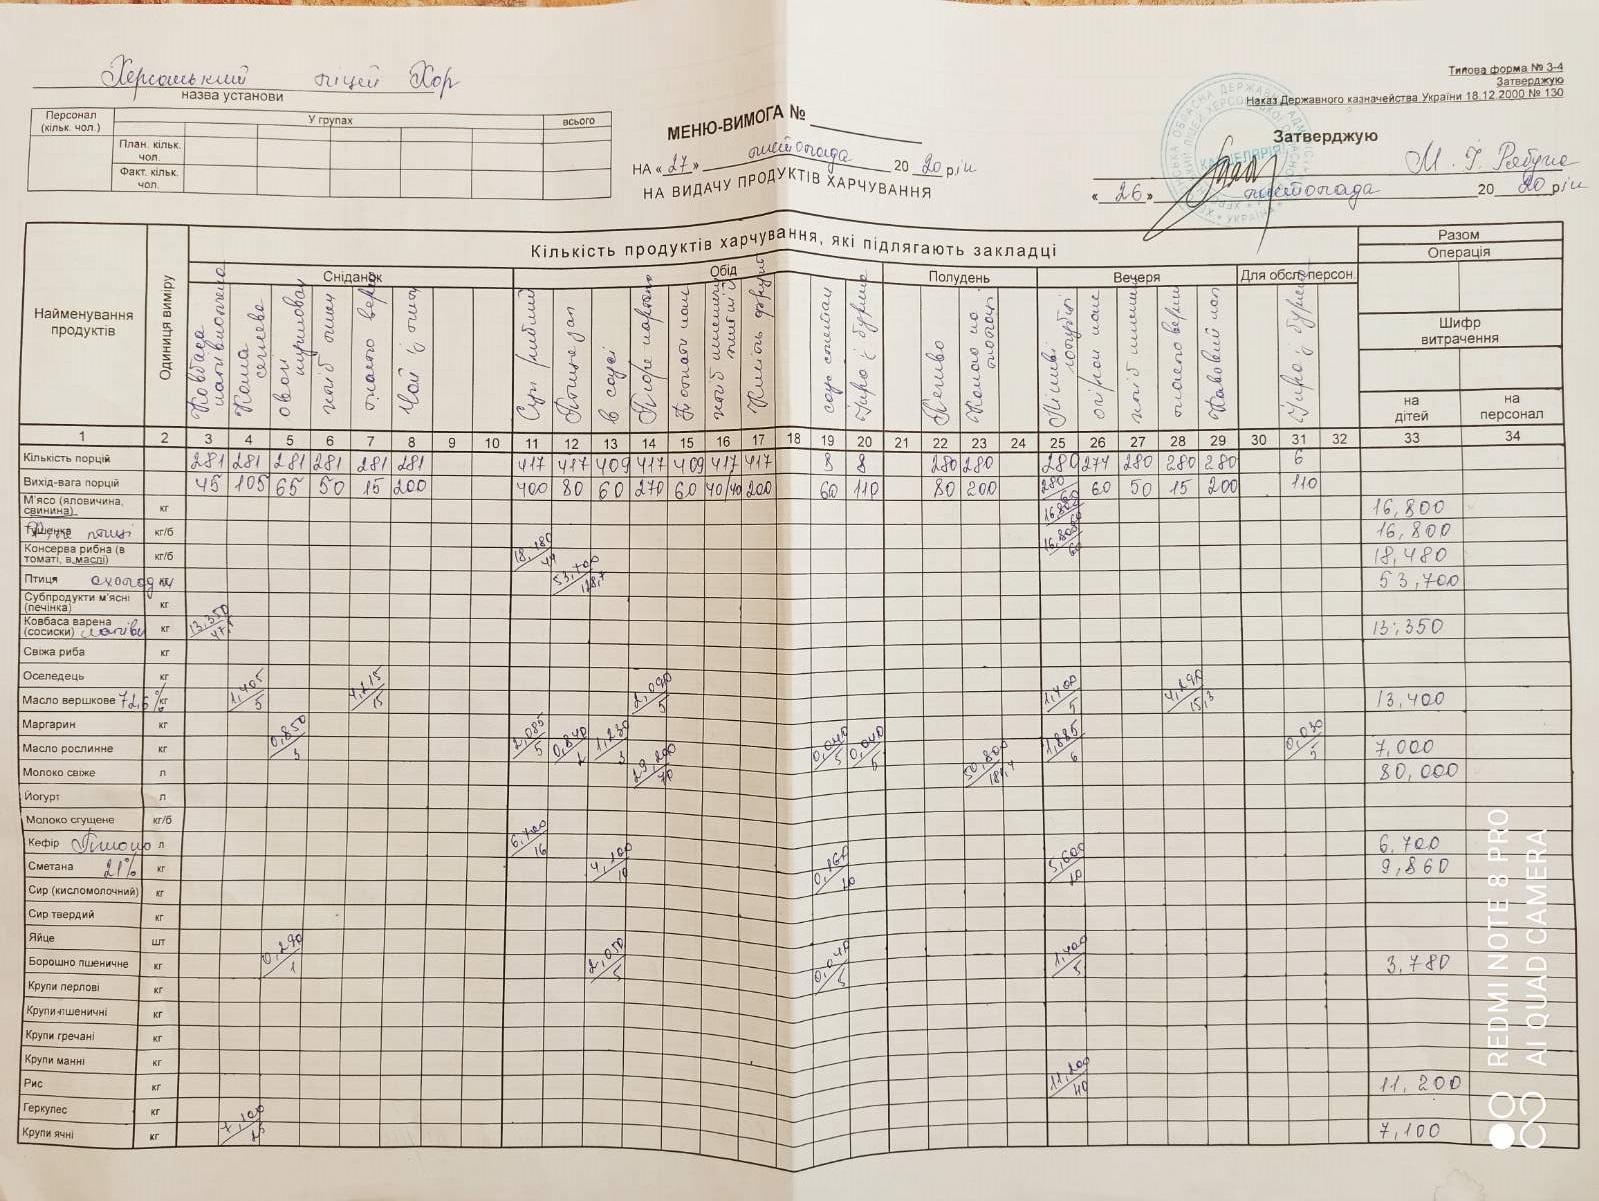 Херсонський ліцей ХОР
назва установи
Типова форма № З-4
Затверджую
Наказ Державного казначейства України 18.12.2000 № 130
Персонал (кільк. чол.)
У групах
всього
План. кільк. чол.
Факт. кільк. чол.
МЕНЮ-ВИМОГА №
НА «27» листопада 2020 рік
НА ВИДАЧУ ПРОДУКТІВ ХАРЧУВАННЯ
Затверджую
«26» листопада 2020 рік
КАНЦЕЛЯРІЯ
УКРАЇНА
Найменування продуктів
Одиниця виміру
Кількість продуктів харчування, які підлягають закладці
Разом
Операція
Шифр витрачення
на дітей
на персонал
Сніданок
Обід
Полудень
Вечеря
Для обсл. персон.
Ковбаса
Каша
овочі
хліб
масло верш
Чай
Суп рибний
Птиця
в соусі
Пюре картопл
хліб пшенич
соус сметан
Пюре з
Печиво
Какао на молоці
Ліниві голубці
хліб пшенич
масло верш
Кавовий нап
1 2 3 4 5 6 7 8 9 10 11 12 13 14 15 16 17 18 19 20 21 22 23 24 25 26 27 28 29 30 31 32 33 34
Кількість порцій 281 281 281 281 281 281 417 417 409 417 409 417 417 8 8 280 280 280 274 280 280 280 6
Вихід-вага порцій 45 105 65 50 15 200 400 80 60 270 60 40/40 200 60 110 80 200 280 60 50 15 200 110
М'ясо (яловичина, свинина) кг 16,800 16,800
Тушенка кг/б 16,800 60 16,800
Консерва рибна (в томаті, в маслі) кг/б 18,480 44 18,480
Птиця охолодж кг 53,700 128,7 53,700
Субпродукти м'ясні (печінка) кг
Ковбаса варена (сосиски) кг 13,350 47,5 13,350
Свіжа риба кг
Оселедець кг
Масло вершкове 72,6% кг 1,405 5 4,215 15 2,090 5 1,400 5 4,290 15,3 13,400
Маргарин кг
Масло рослинне кг 0,850 3 2,085 5 0,840 2 1,230 3 0,040 5 0,040 5 1,885 6 0,030 5 7,000
Молоко свіже л 29,200 70 50,800 181,4 80,000
Йогурт л
Молоко сгущене кг/б
Кефір л 6,700 16 6,700
Сметана 21% кг 4,100 10 0,160 20 5,600 20 9,860
Сир (кисломолочний) кг
Сир твердий кг
Яйце шт
Борошно пшеничне кг 0,290 1 2,050 5 0,040 5 1,400 5 3,780
Крупи перлові кг
Крупи пшеничні кг
Крупи гречані кг
Крупи манні кг
Рис кг 11,200 40 11,200
Геркулес кг
Крупи ячні кг 7,100 25 7,100
REDMI NOTE 8 PRO
AI QUAD CAMERA